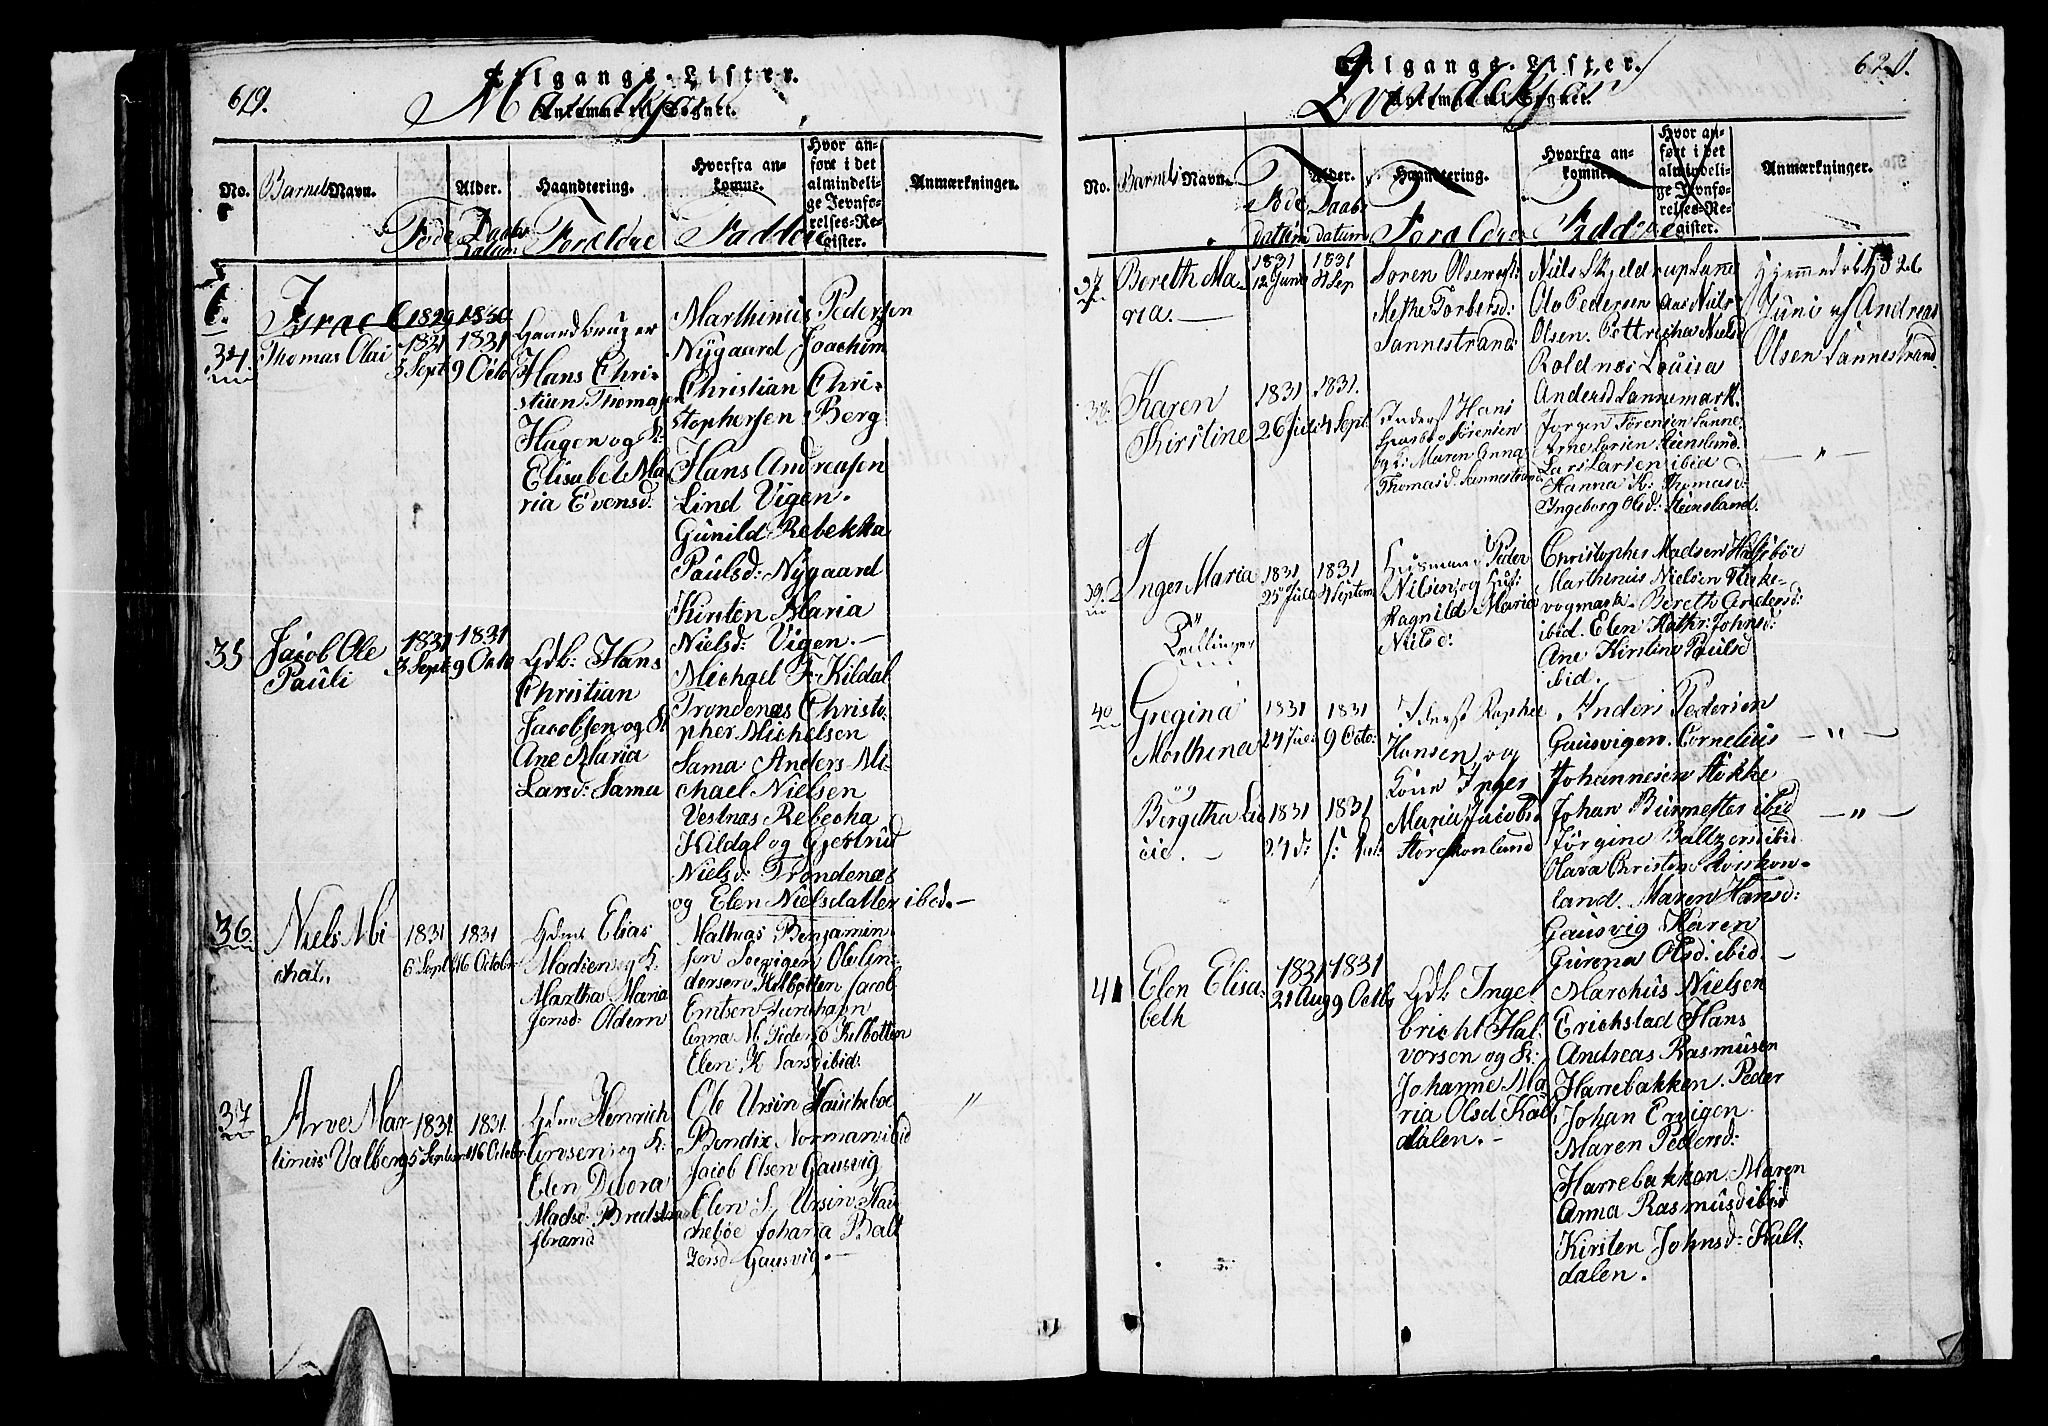 619.
Tilgangs-Lister.
Mandkjøn
Ankomne til Sognet.
No.
Barnets Navn.
Føde
Alder.
Daabs
Datum
Haandtering.
Forældre
Hvorfra ankomne.
Faddere
Hvor anført i det almindelige Jevnførelses-Register.
Anmærkninger.
Israel 1829 1830
34. Thomas Olai
1831 3 Sept
1831 9 Octo
Gaardbruger
Hans Chri-
stian Thomasen
Hagen og K:
Elisabet Ma
ria Evensd:
Marthinus Pedersen
Nÿgaard Joachim
Christian Chri-
stophersen Berg
Hans Andreasen
Lind Vigen.
Gunild Rebekka
Paulsd: Nÿgaard
Kirsten Maria
Nielsd: Vigen. —
35 Jacob Ole
Pauli
1831 3 Sept
1831 9 Octo
Gdb: Hans
Christian
Jacobsen og K
Ane Maria
Larsd: Sama
Michael F. Kildal
Trondenæs Christo-
pher Michelsen
Sama Anders Mi-
chael Nielsen
Vestnæs Rebecha
Kildal og Gjertrud
Nielsd: Trondenæs
og Elen Nielsdatter ibid. —
36 Niels Mi
chal.
1831 6 Sept
1831 16 Octobr
Elias
Madsen og K.
Martha Maria
Jensd: Oldern
Mathias Benjamin-
sen Soevigen Ole An-
dersen Kilbotten Jacob
Entsen
Anna M. Pedersd Kilbotten
Elen K Larsd ibid:
37 Arve Mar-
tinus Valberg
1831 5 Septem
1831 16 Octobr
Henrich
Arosen og K:
Elen Devora
Madsd: Bredstrand
strand
Ole Ursin Haucheboe
Bendix Norman ibid
Jacob Olsen Gausvig
Elen S. Ursin Hau
cheböe Johana Balt
zersd Gausvig. —
"
Tilgangs-Lister.
620.
Qvindekjøn
Ankomne til Sognet.
No.
Barnets Navn.
Føde
datum
Alder.
Daabs
datum
Haandtering.
Forældre
Hvorfra ankomne.
Faddere
Hvor anført i det almindelige Jevnførelses-Register.
Anmærkninger.
37 Bereth Ma-
ria. —
1831 12 Juni
1831 4 Sep
Søren Olsen og k:
Methe Torbersd:
Sannestrand
Niels Skjeldrup Sane
Ole Pedersen Aas Niels
Olsen. Pettricha Nielsd
Roldnæs Lovisa
Andersd Sannemark.
Hjemmedøbt d 26
Juni af Andreas
Olsen Sannestrand.
38. Karen
Kirstine
1831 26 Juli
1831. 4 Sept.
Inderst Hans
Sørensen
og k: Maren Anna
Thomasd: Sannestrand
Jørgen Sørensen Sanne.
Arne Larsen Steensland.
Lars Larsen ibid
Hanna K: Thomasd:
Ingeborg Olsd: Steensland.
— " —
39. Inger Maria
1831 25 Juli
1831 4 Septem
Husmand Peder
Nilsen og Hus:
Ragnild Maria
Nilsd:
Christopher Madsen Halsböe
Marthinus Nielsen Fiske-
vogmark. Bereth Andersd:
ibid. Elen Kathr: Johnsd:
Ane Kirstine Paulsd
ibid. —
Tvillinger
40 Gregina
Morthina
1831 24 Jul:
1831 9 Octo:
og
Bergetha Lu
cie. —
1831 24 d:
1831
Inderst Raphel
Hansen og
Kone Inger
Maria Jacobsd
Storekonland
Anders Pedersen
Gausvigen. Cornelius
Johannesen Stokke
Johan Burmester ibid
Jørgine Baltzersd ibid.
Olava Christens Storekon-
land. Maren Hansd:
Gausvig Karen
Gurena Olsd: ibid. —
— " —
— " —
41 Elen Elisa-
beth
1831 21 Aug
1831 9 Octbr
Gdb: Inge-
bricht Hal-
vorsen og K:
Johanne Ma-
ria Olsd Kal
dalen. —
Marchus Nielsen
Erichstad Hans
Andreas Rasmusen
Harrebakken. Peder
Johan Ervigen.
Maren Pedersd:
Harrebakken Maren
Anna Rasmusd ibid
Kirsten Johnsd: Kalt-
dalen.